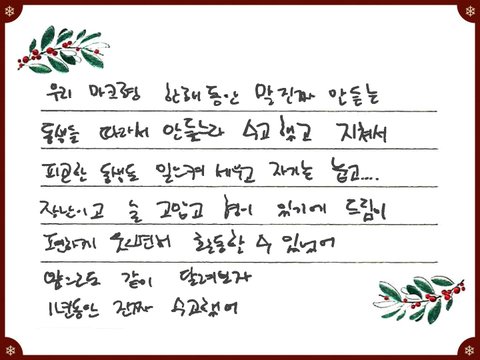 우리 마크형 한해동안 말 진짜 안듣는
동생들 따라서 안들느라 수고 했고 지쳐서
피곤한 동생들 일으켜 세우고 자기는 눕고....
장난이고 늘 고맙고 형이 있기에 드림이
편하게 웃으면서 활동할 수 있었어
앞으로도 같이 달려보자
1년동안 진짜 수고했어